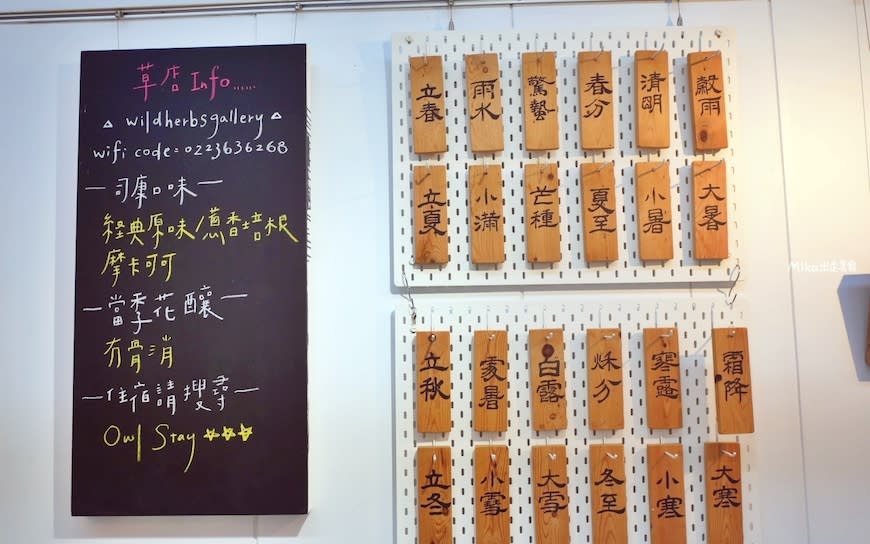 草店Info......
wildherbsgallery
wifi code=0223636268
—司康口味—
經典原味/蔥香培根
摩卡可可
—當季花釀—
冇骨消
—住宿請搜尋—
Owl Stay
立春 雨水 驚蟄 春分 清明 穀雨
立夏 小滿 芒種 夏至 小暑 大暑
立秋 處暑 白露 秌分 寒露 霜降
立冬 小雪 大雪 冬至 小寒 大寒
Mika出走美食